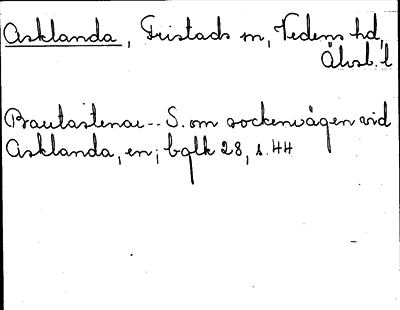 Asklanda, Fristads sn, Vedens hd,
Älvsb. l
Bautastenar -- S. om sockenvägen vid
Asklanda, en; bglk 28, s. 44